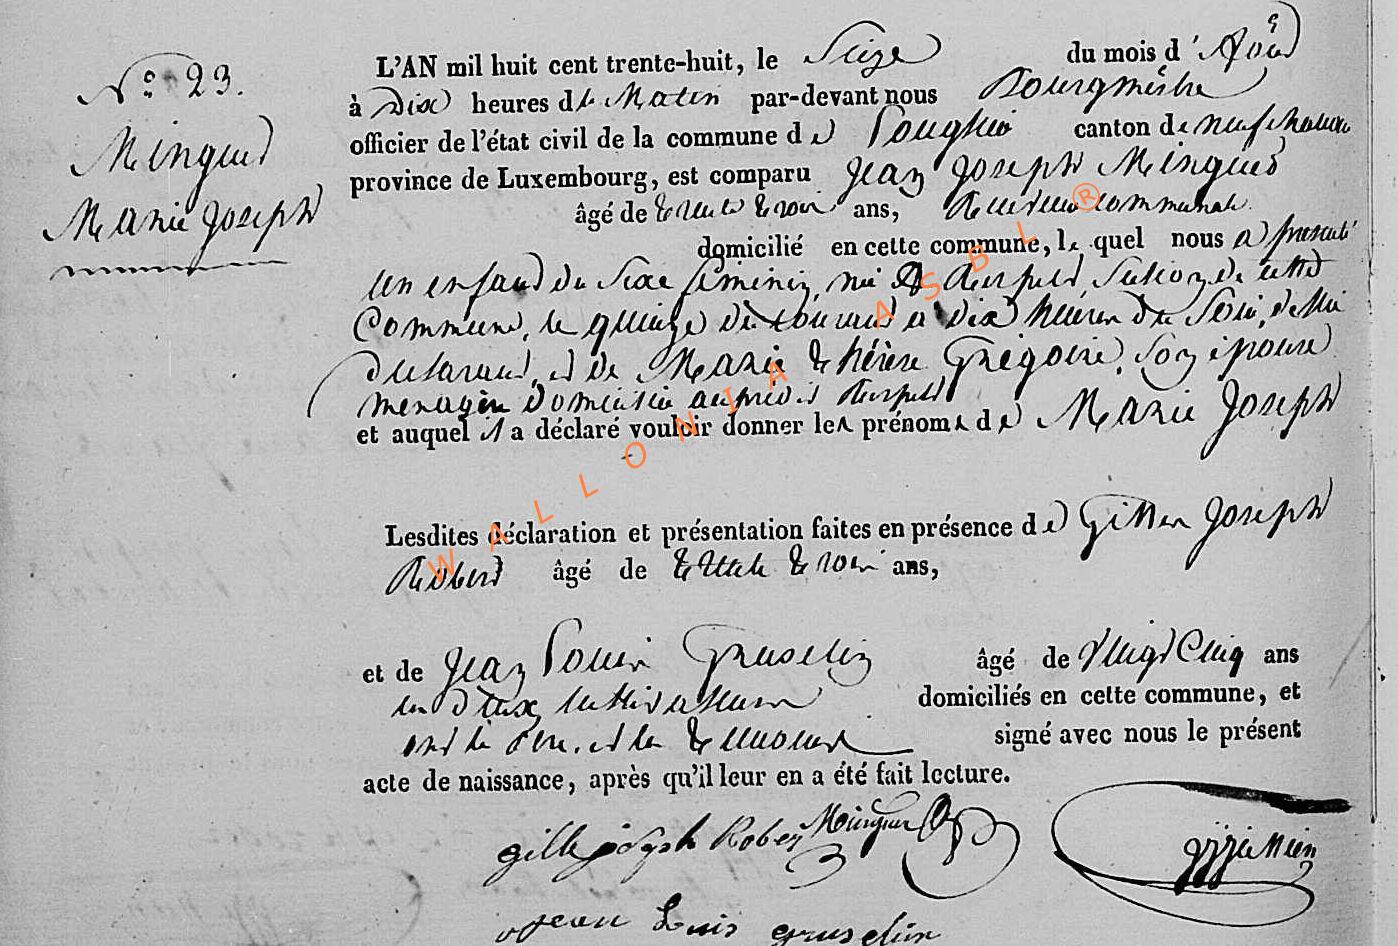 N° 23.
Mingued
Marie Joseph
L'AN mil huit cent trente-huit, le Seize du mois d'Août
à Dix heures du Matin par-devant nous Bourgmestre
officier de l'état civil de la commune de Longlier canton de neufchateau
province de Luxembourg, est comparu Jean Joseph Minguet
âgé de trente trois ans, Receveur communal
domicilié en cette commune, lequel nous a presenté
un enfant du Sexe féminin, né à Respelt, Section de cette
Commune, le quinze du courant à dix heures du Soir, de lui
Declarant, et de Marie thérèse Grégoire, son épouse
menagère Domiciliée au prédit Respelt
et auquel il a déclaré vouloir donner les prénoms de Marie Joseph
Lesdites déclaration et présentation faites en présence de Gilles Joseph
Robert âgé de trente trois ans,
et de Jean Louis Gruselin âgé de Vingt Cinq ans
tous Deux cultivateurs domiciliés en cette commune, et
ont le Père, et les temoins signé avec nous le présent
acte de naissance, après qu'il leur en a été fait lecture.
gille joseph Robert Mingue
jean Louis gruselin
WALLONIA ASBL ®